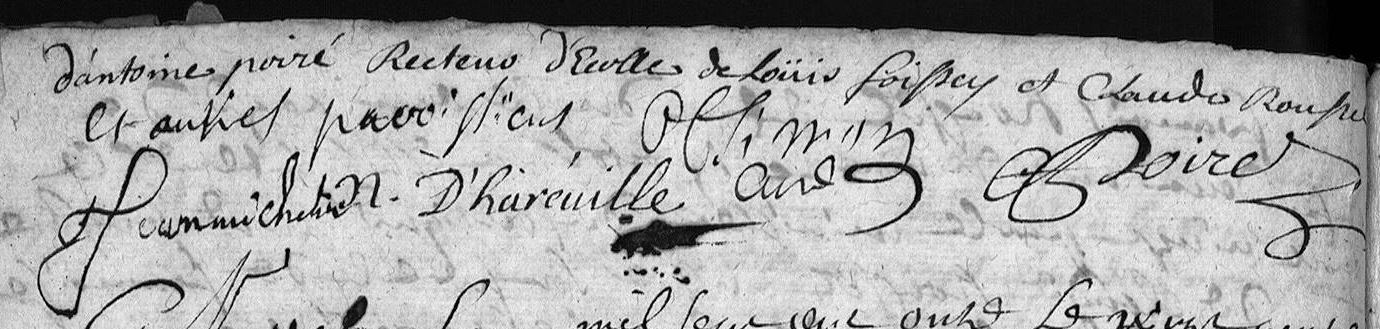 d'antoine poiré Recteur d'Ecolle de Loüis foissey et Claude Rousse
et autres paroissiens Simon
Jean michel N. D'haréville Curé Poiré
mil sept cent onze Le